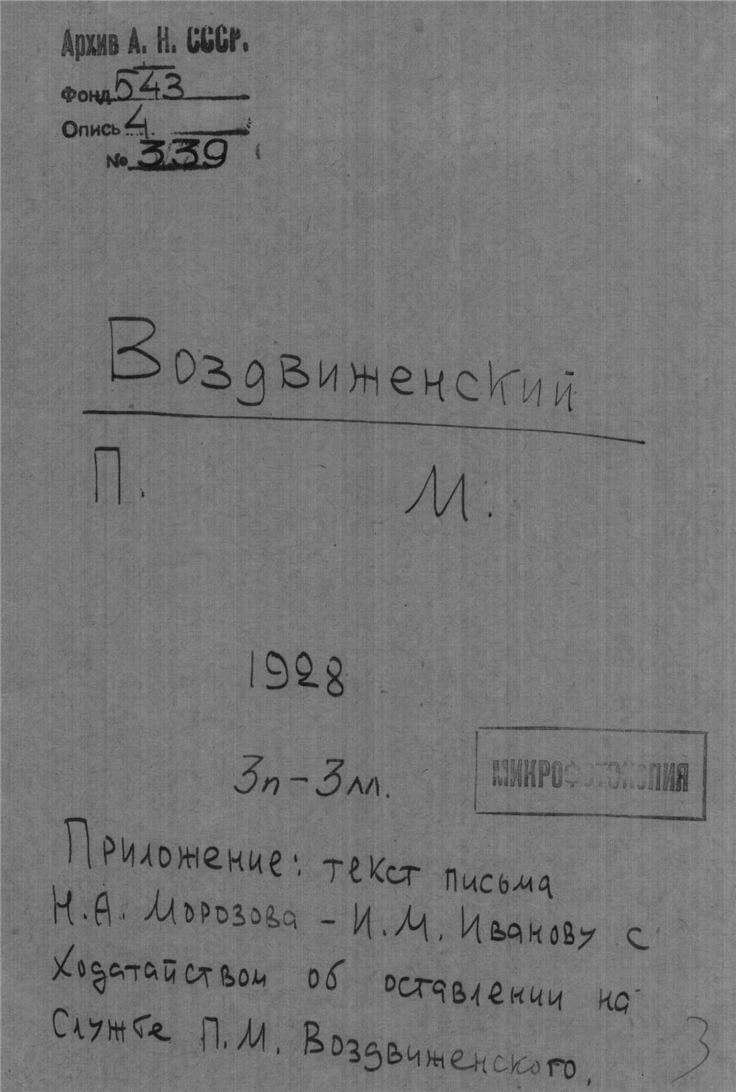 Архив А. Н. СССР.
Фонд 543
Опись 4.
№ 339
Воздвиженский
П. М.
1928
3п – 3лл.
МИКРОФОТОКОПИЯ
Приложение: текст письма
Н.А. Морозова – И.М. Иванову с
Ходатайством об оставлении на
Службе П.М. Воздвиженского.
3